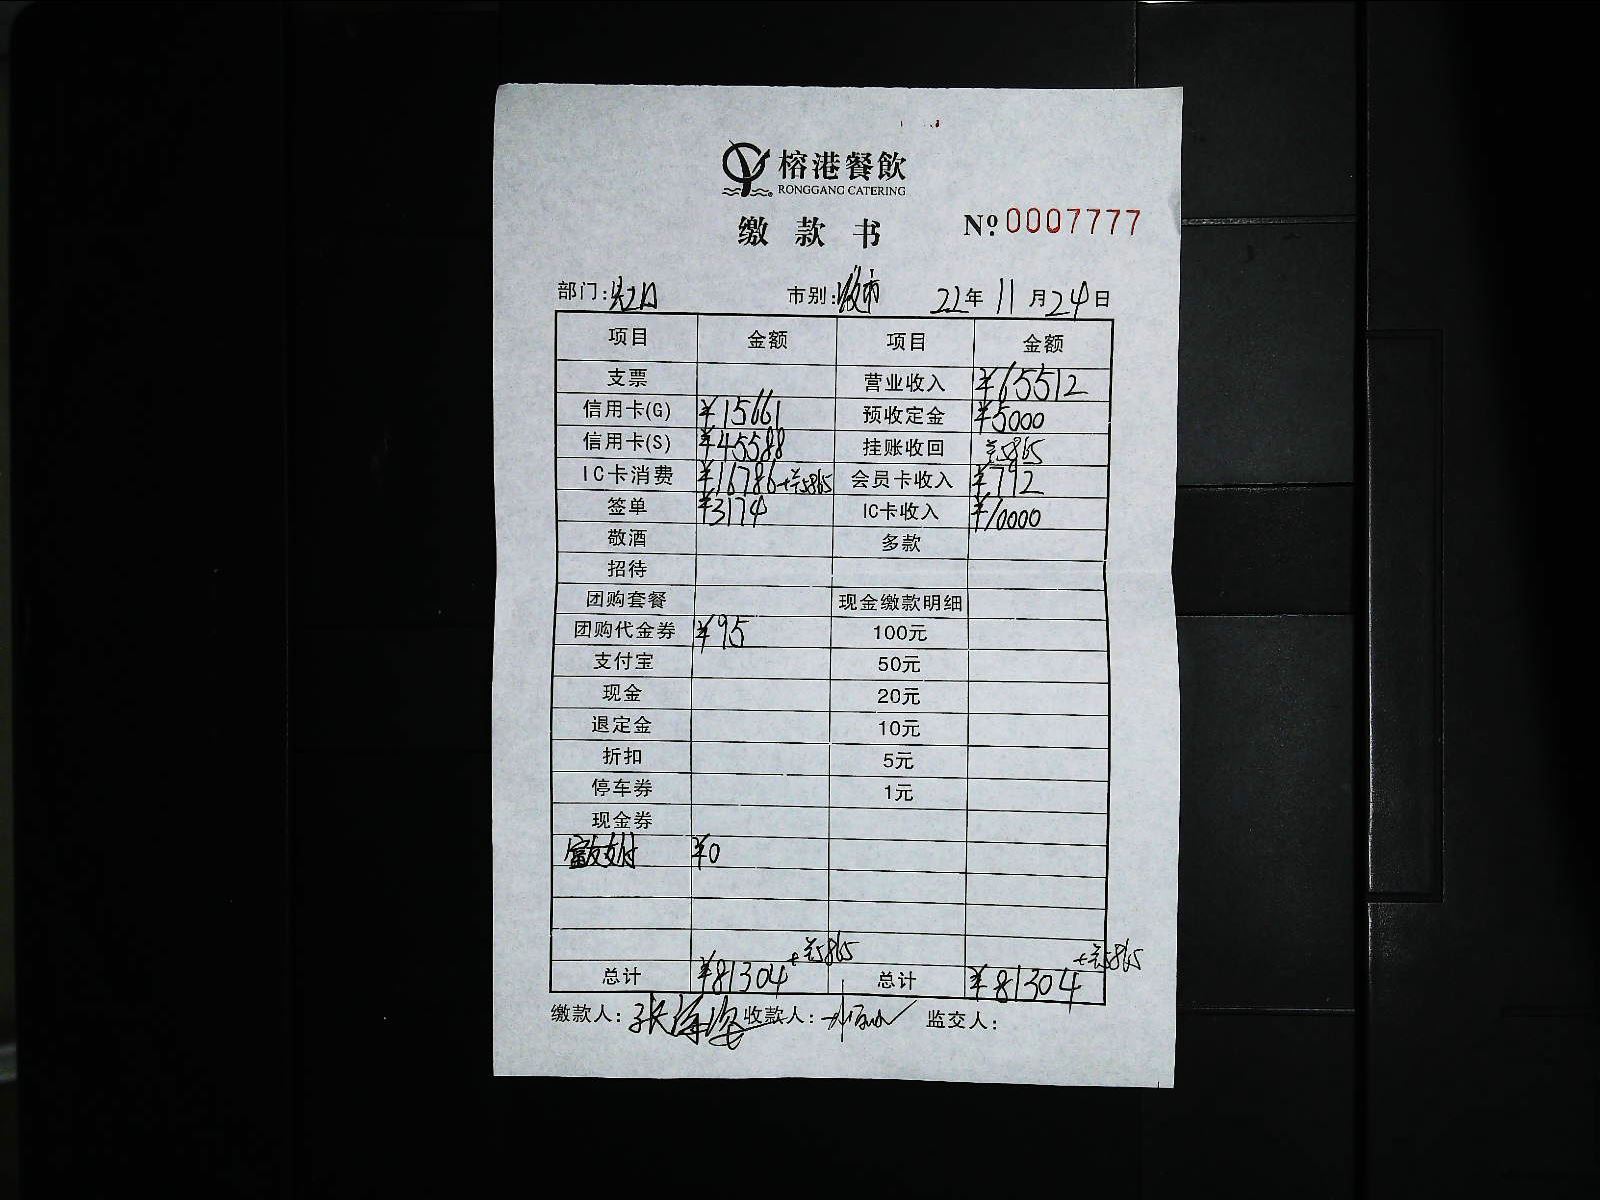 榕港餐飲
RONGGANG CATERING
缴款书 Nº:0007777
部门: 市别:夜市 22年11月24日
项目 金额 项目 金额
支票 营业收入 ¥65512
信用卡(G) ¥15661 预收定金 ¥5000
信用卡(S) ¥45588 挂账收回 ¥5865
IC卡消费 ¥16786+¥5865 会员卡收入 ¥792
签单 ¥3174 IC卡收入 ¥10000
敬酒 多款
招待
团购套餐 现金缴款明细
团购代金券 ¥95 100元
支付宝 50元
现金 20元
退定金 10元
折扣 5元
停车券 1元
现金券
支付 ¥0
+¥5865 +¥5865
总计 ¥81304 总计 ¥81304
缴款人:张 收款人: 监交人: